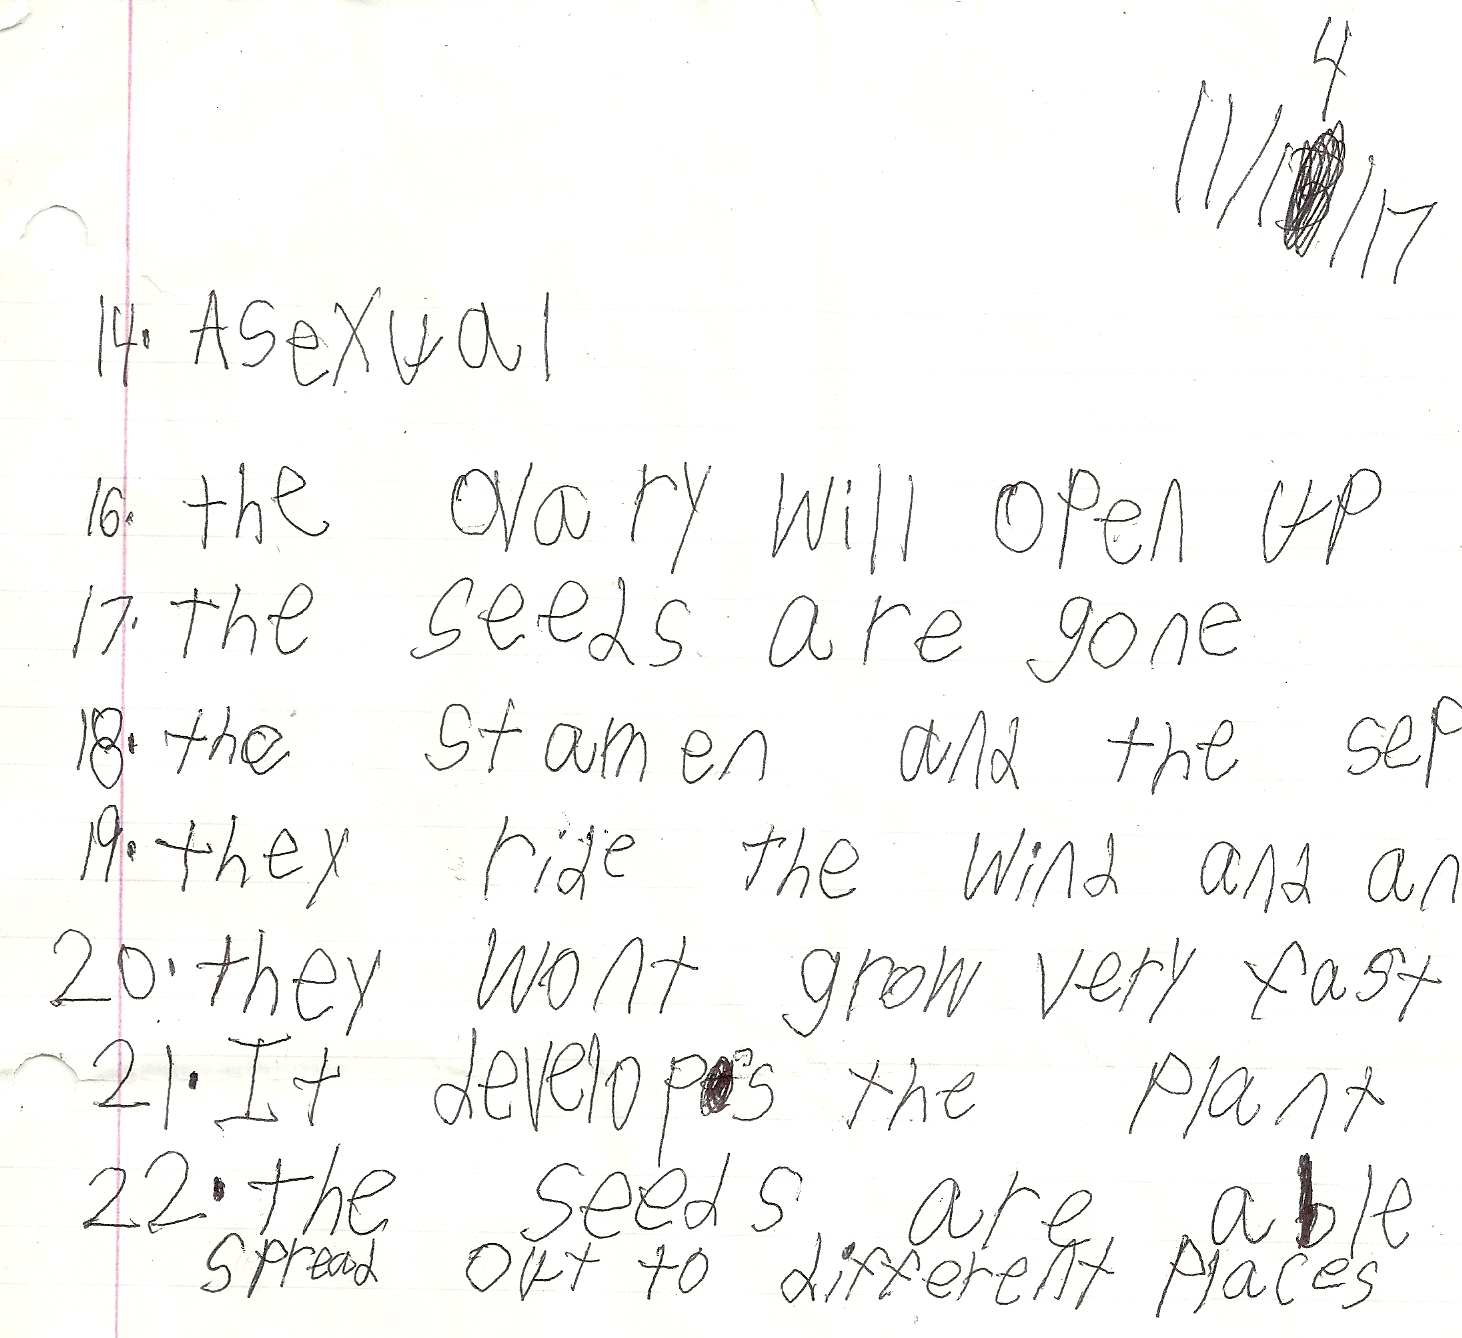 4
11/1 /17
14. Asexual
16. the ovary will open up
17. the seeds are gone
18. the stamen and the sep
19. they ride the wind and an
20. they wont grow very fast
21. It develops the plant
22. the seeds are able
spread out to different places